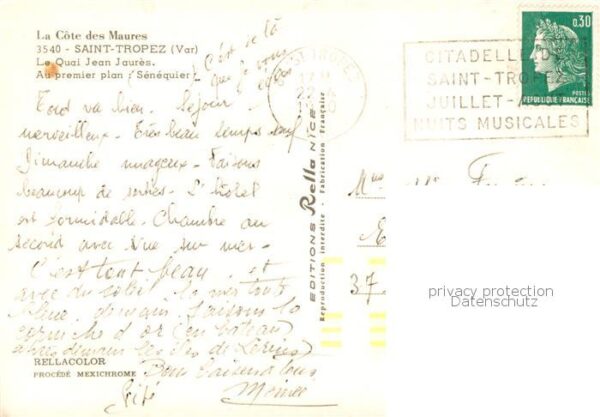 La Côte des Maures
3540 - SAINT-TROPEZ (Var)
Le Quai Jean Jaurès.
Au premier plan "Sénéquier"
C'est de là
que je vous
Tout va bien. Séjour
merveilleux. Très beau temps sauf
Dimanche nuageux. Faisons
beaucoup de sorties. L'hôtel
est formidable. Chambre au
second avec vue sur mer.
C'est tout beau et
avec du soleil la mer toute
bleue, demain faisons la
corniche d'or (en bateau)
après demain les îles de Lérins
Bons baisers à tous
RELLACOLOR
PROCÉDÉ MEXICHROME
Gité
ST TROPEZ
17 H
22
EDITIONS Rella NICE
Reproduction interdite - Fabrication Française
0,30
POSTES
REPUBLIQUE FRANÇAISE
CITADELLE D
SAINT-TROPEZ
JUILLET-A
NUITS MUSICALES
37.
privacy protection
Datenschutz